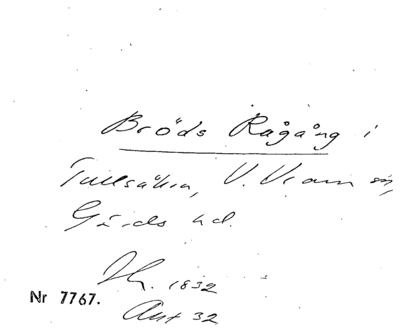 Bröds Rågång i
Tullsåkra, V. Vram sn,
Gärds hd.
1832
Nr 7767.
Akt 32